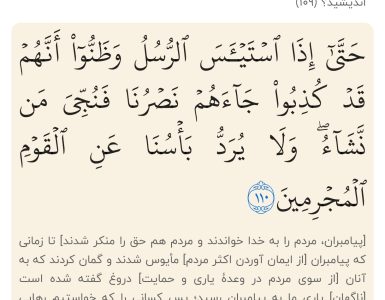 اندیشید؟ (۱۰۹)
حَتَّىٰٓ إِذَا ٱسْتَيْـَٔسَ ٱلرُّسُلُ وَظَنُّوٓاْ أَنَّهُمْ
قَدْ كُذِبُواْ جَآءَهُمْ نَصْرُنَا فَنُجِّىَ مَن
نَّشَآءُ ۖ وَلَا يُرَدُّ بَأْسُنَا عَنِ ٱلْقَوْمِ
ٱلْمُجْرِمِينَ ١١٠
[پیامبران، مردم را به خدا خواندند و مردم هم حق را منکر شدند] تا زمانی
که پیامبران [از ایمان آوردن اکثر مردم] مأیوس شدند و گمان کردند که به
آنان [از سوی مردم در وعدهٔ یاری و حمایت] دروغ گفته شده است
[ناگهان] یاری ما به پیامبران رسید؛ پس کسانی را که خواستیم رهایی